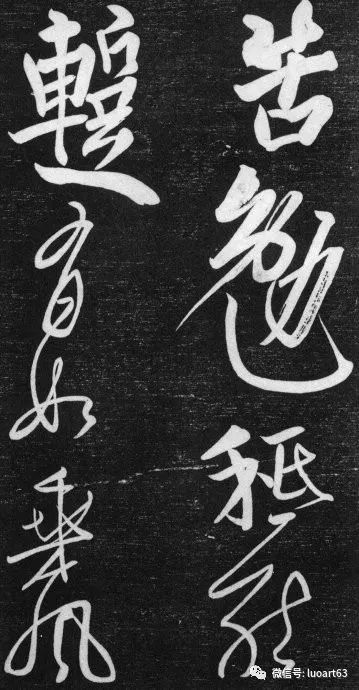 苦勉秪能
暫有如乘風
微信号: luoart63